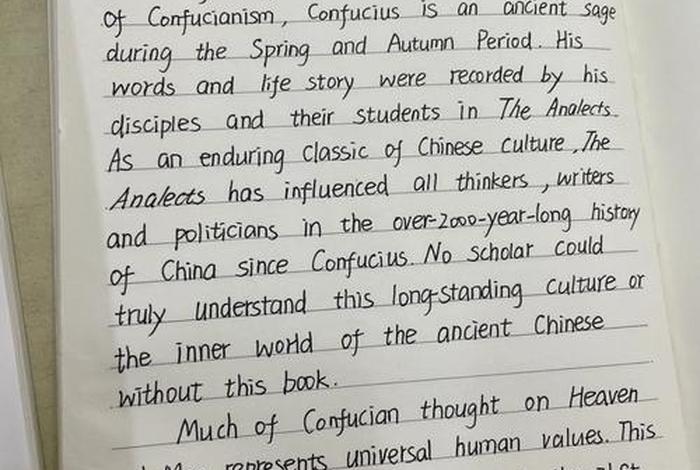 Of Confucianism, Confucius is an ancient sage
during the Spring and Autumn Period. His
words and life story were recorded by his
disciples and their students in The Analects.
As an enduring classic of Chinese culture, The
Analects has influenced all thinkers, writers
and politicians in the over-2000-year-long history
of China since Confucius. No scholar could
truly understand this long-standing culture or
the inner world of the ancient Chinese
without this book.
Much of Confucian thought on Heaven
represents universal human values. This